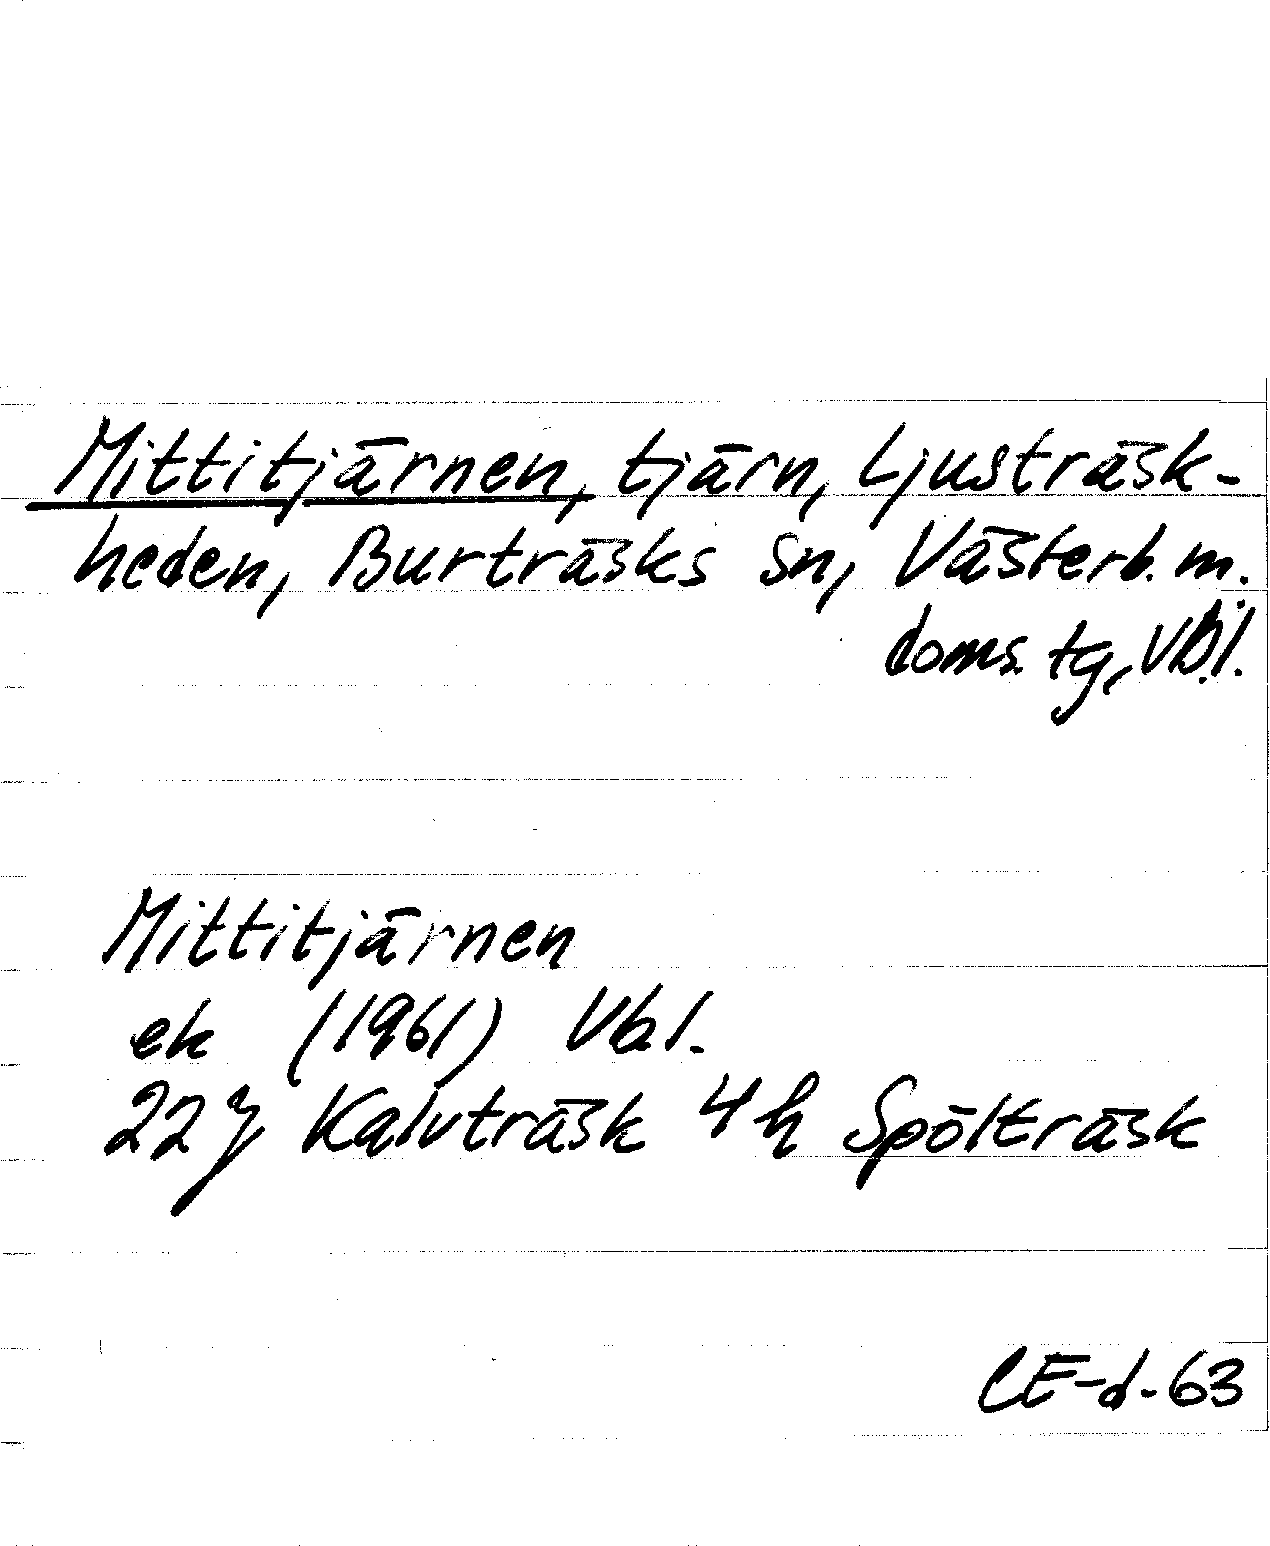 Mittitjärnen, tjärn, Ljusträsk-
heden, Burträsks sn, Västerb. m.
doms. tg, Vb.l.
Mittitjärnen
ek (1961) Vb l.
22 J Kalvträsk 4 h Spölträsk
CE-d-63